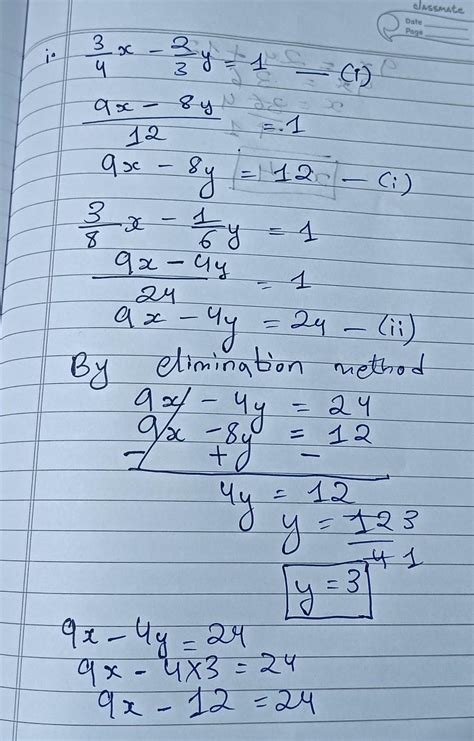 classmate
Date
Page
i. 3/4 x - 2/3 y = 1 — (i)
9x - 8y / 12 = 1
9x - 8y = 12 — (i)
3/8 x - 1/6 y = 1
9x - 4y / 24 = 1
9x - 4y = 24 — (ii)
By elimination method
9x - 4y = 24
9x - 8y = 12
- + -
4y = 12
y = 12 3
4 1
y = 3
9x - 4y = 24
9x - 4×3 = 24
9x - 12 = 24